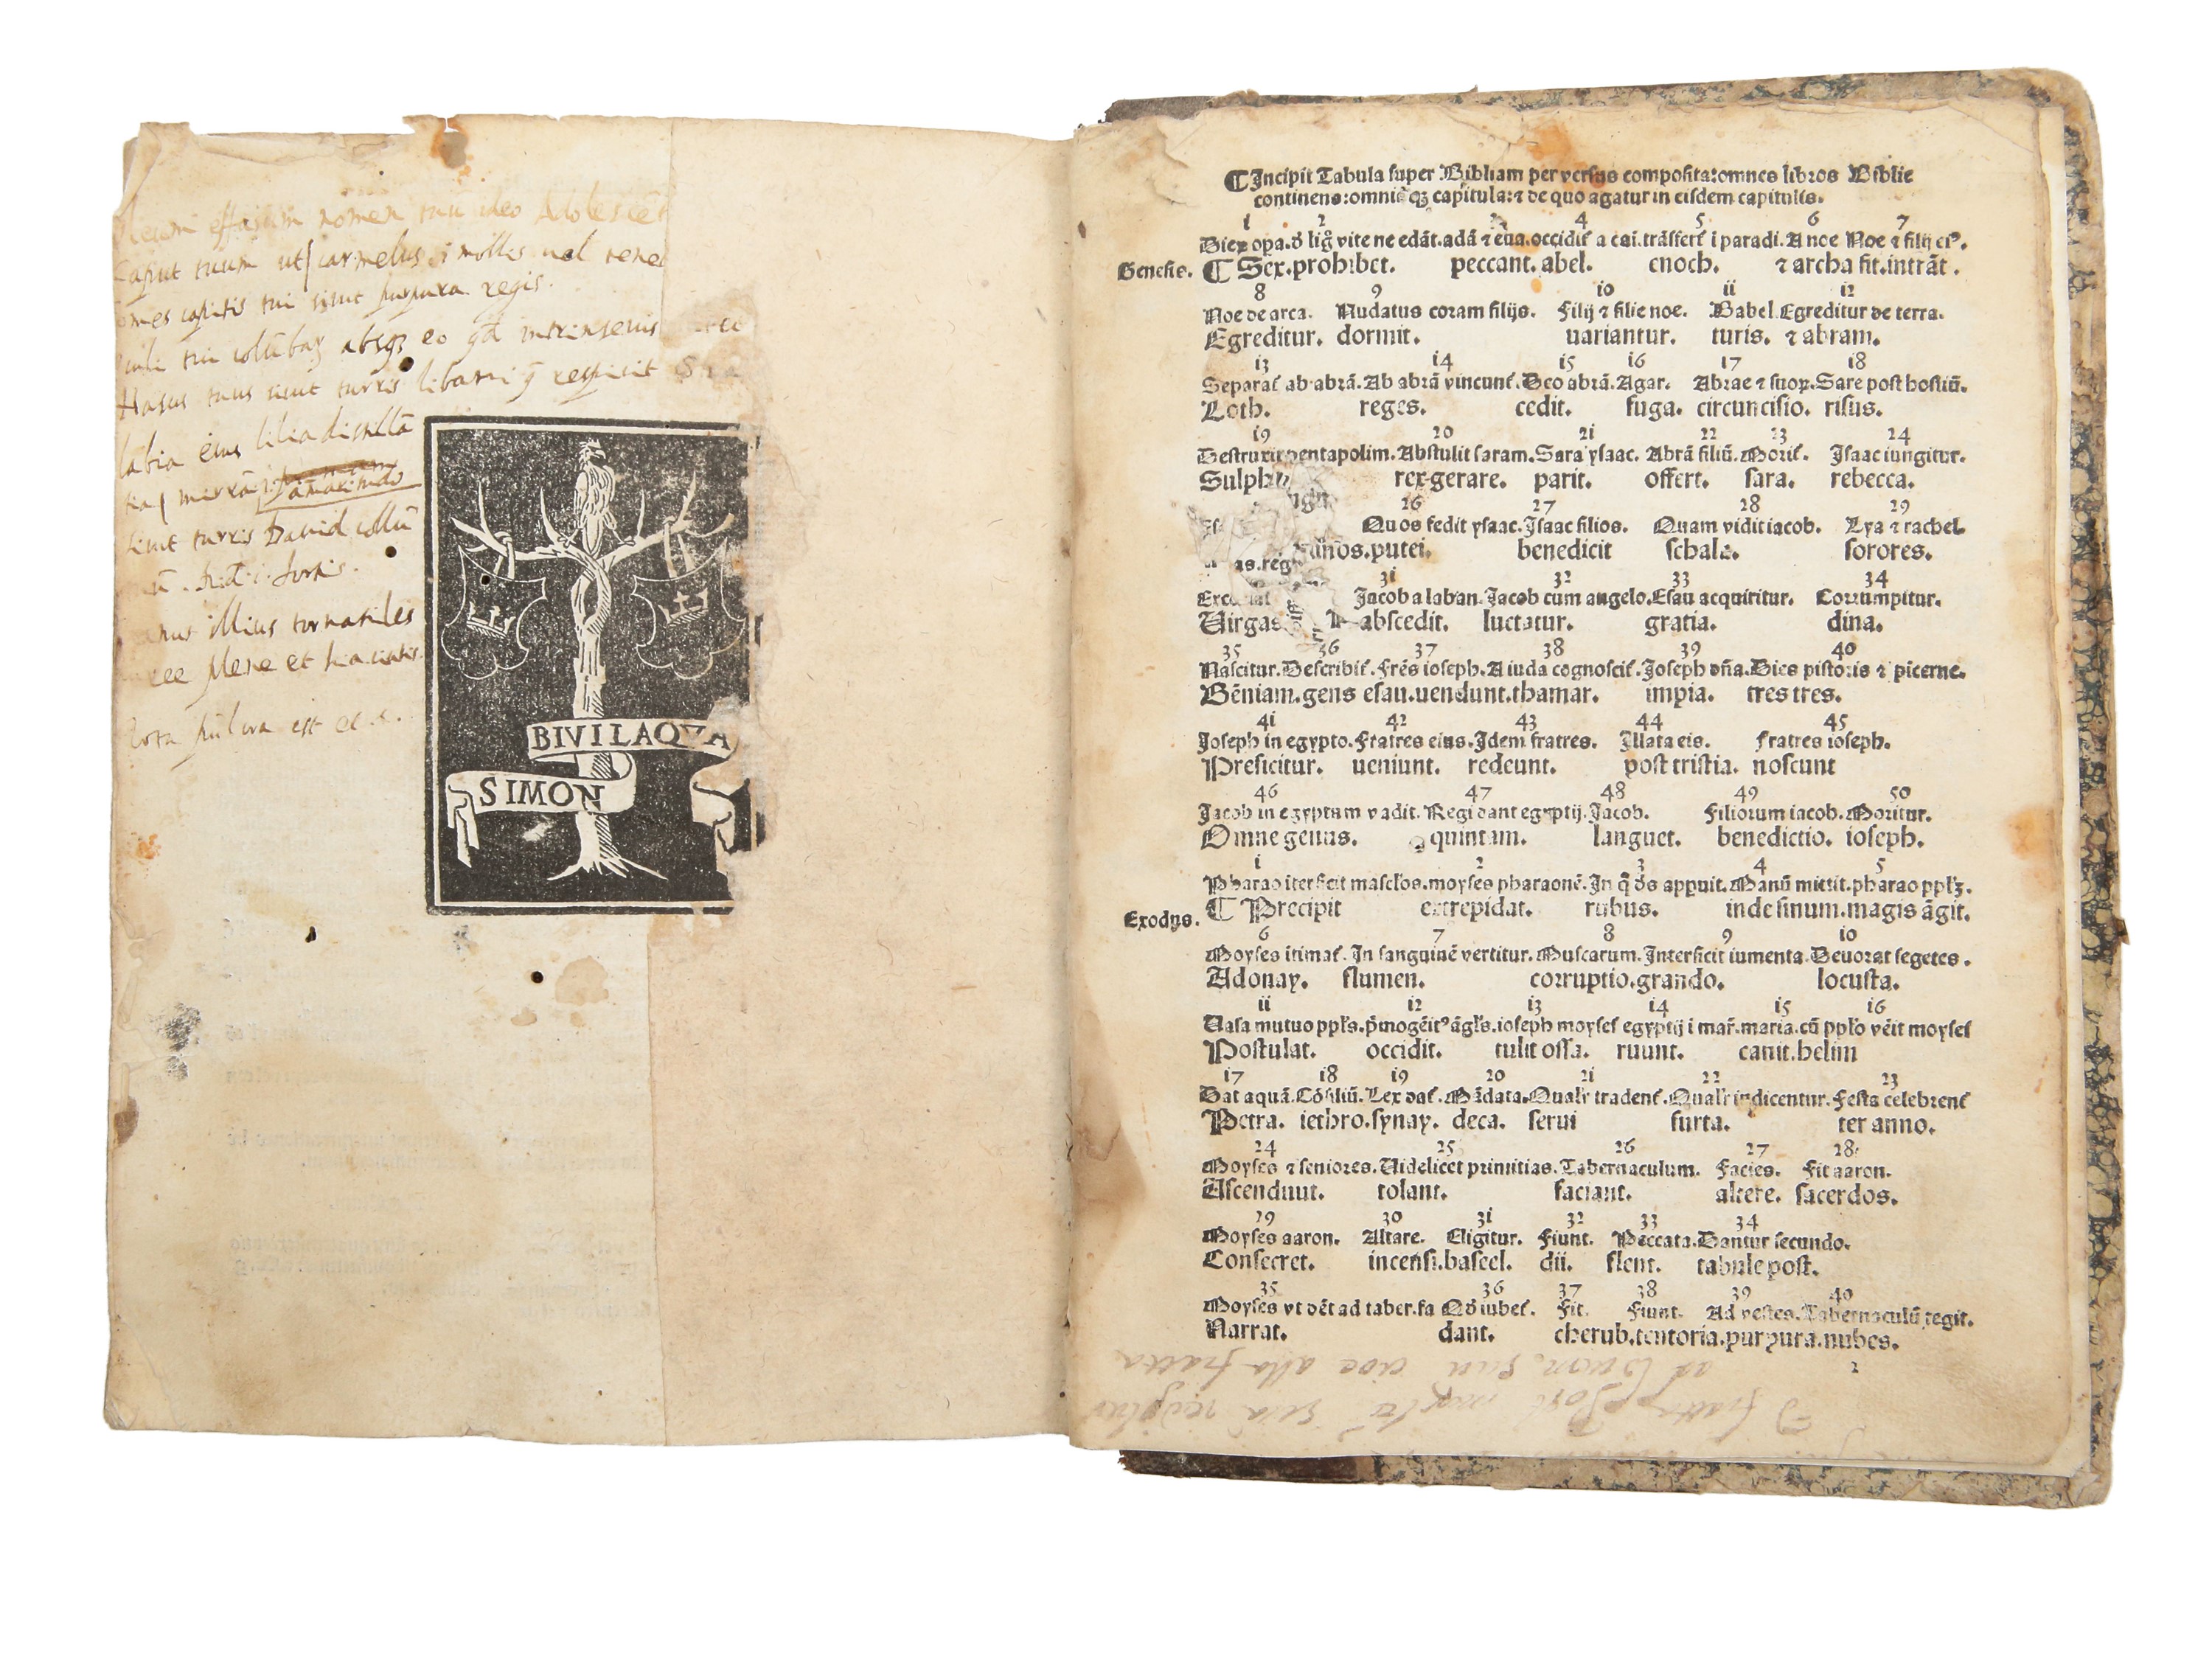 effusum nomen tuu ideo Adolescet
Caput tuum ut carmelus .i. mollis uel tene
capitis tui sicut purpura regis.
tui colubaꝝ absqꝫ eo qd intrinsecus
Nasus tuus sicut turris libani q respicit
labia eius lilia distillā
mirrā amaritudo
sicut turris David collū
.i. fortis.
illius tornatiles
plene et hiacintis
pulcra est
BIVILAQVA
SIMON
¶ Incipit Tabula super Bibliam per versus composita: omnes libros Biblie
continens: omniūqꝫ capitula: ⁊ de quo agatur in eisdem capitulis.
1 2 3 4 5 6 7
vite ne edāt. adā ⁊ eua. occidit̄ a cai. trāsfert̄ i paradi. A noe Noe ⁊ filij eiꝰ.
Genesis.
¶ Sex. prohibet. peccant. abel. enoch. ⁊ archa fit. intrāt.
8 9 10 11 12
Noe de arca. Nudatus coram filijs. Filij ⁊ filie noe. Babel. Egreditur de terra.
Egreditur. dormit. uariantur. turis. ⁊ abram.
13 14 15 16 17 18
Separat̄ ab abrā. Ab abrā vincunt̄. Deo abrā. Agar. Abrae ⁊ suoꝝ. Sare post hostiū.
Loth. reges. cedit. fuga. circuncisio. risus.
19 20 21 22 23 24
Destruxit pentapolim. Abstulit saram. Sara ysaac. Abrā filiū. Morit̄. Isaac iungitur.
rex gerare. parit. offert. sara. rebecca.
26 27 28 29
Quos fedit ysaac. Isaac filios. Quam vidit iacob. Lya ⁊ rachel.
putei. benedicit schala. sorores.
31 32 33 34
Jacob a laban. Jacob cum angelo. Esau acquiritur. Corrumpitur.
Uirgas abscedit. luctatur. gratia. dina.
35 36 37 38 39 40
Nascitur. Describit̄. Frēs ioseph. A iuda cognoscit̄. Joseph dn̄a. Dies pistoris ⁊ picerne.
Bēniam. gens esau. uendunt. thamar. impia. tres tres.
41 42 43 44 45
Joseph in egypto. Fratres eius. Idem fratres. Illata eis. fratres ioseph.
Preficitur. ueniunt. redeunt. post tristia. noscunt
46 47 48 49 50
Jacob in egyptum vadit. Regi dant egyptij. Jacob. Filiorum iacob. Moritur.
Omne genus. quintam. languet. benedictio. ioseph.
1 2 3 4 5
Pharao iterficit mascl'os. moyses pharaonē. In q̄ ds̄ appuit. Manū mittit. pharao ppl'ꝫ.
Exodus.
¶ Precipit extrepidat. rubus. inde sinum. magis āgit.
6 7 8 9 10
Moyses ītimat̄. In sanguinē vertitur. Muscarum. Interficit iumenta. Deuorat segetes.
Adonay. flumen. corruptio. grando. locusta.
11 12 13 14 15 16
Uasa mutuo ppl's. p̄mogēitꝰ āgl's. ioseph moyses egyptij i mar̄. maria. cū ppl'o vēit moyses
Postulat. occidit. tulit ossa. ruunt. canit. helim
17 18 19 20 21 22 23
Dat aquā. Cōsiliū. Lex dat̄. Mādata. Qual'r tradent̄. Qual'r indicentur. Festa celebrent̄
Petra. iethro. synay. deca. serui furta. ter anno.
24 25 26 27 28
Moyses ⁊ seniores. Uidelicet primitias. Tabernaculum. Facies. Fit aaron.
Ascendunt. tolant. faciant. altere. sacerdos.
29 30 31 32 33 34
Moyses aaron. Altare. Eligitur. Fiunt. Peccata. Dantur secundo.
Consecret. incensi. beseel. dii. flent. tabule post.
35 36 37 38 39 40
Moyses vt dēt ad taber. fa Qd̄ iubet̄. Fit. Fiunt. Ad vestes. Tabernaculū tegit.
Narrat. dant. cherub. tentoria. purpura. nubes.
2